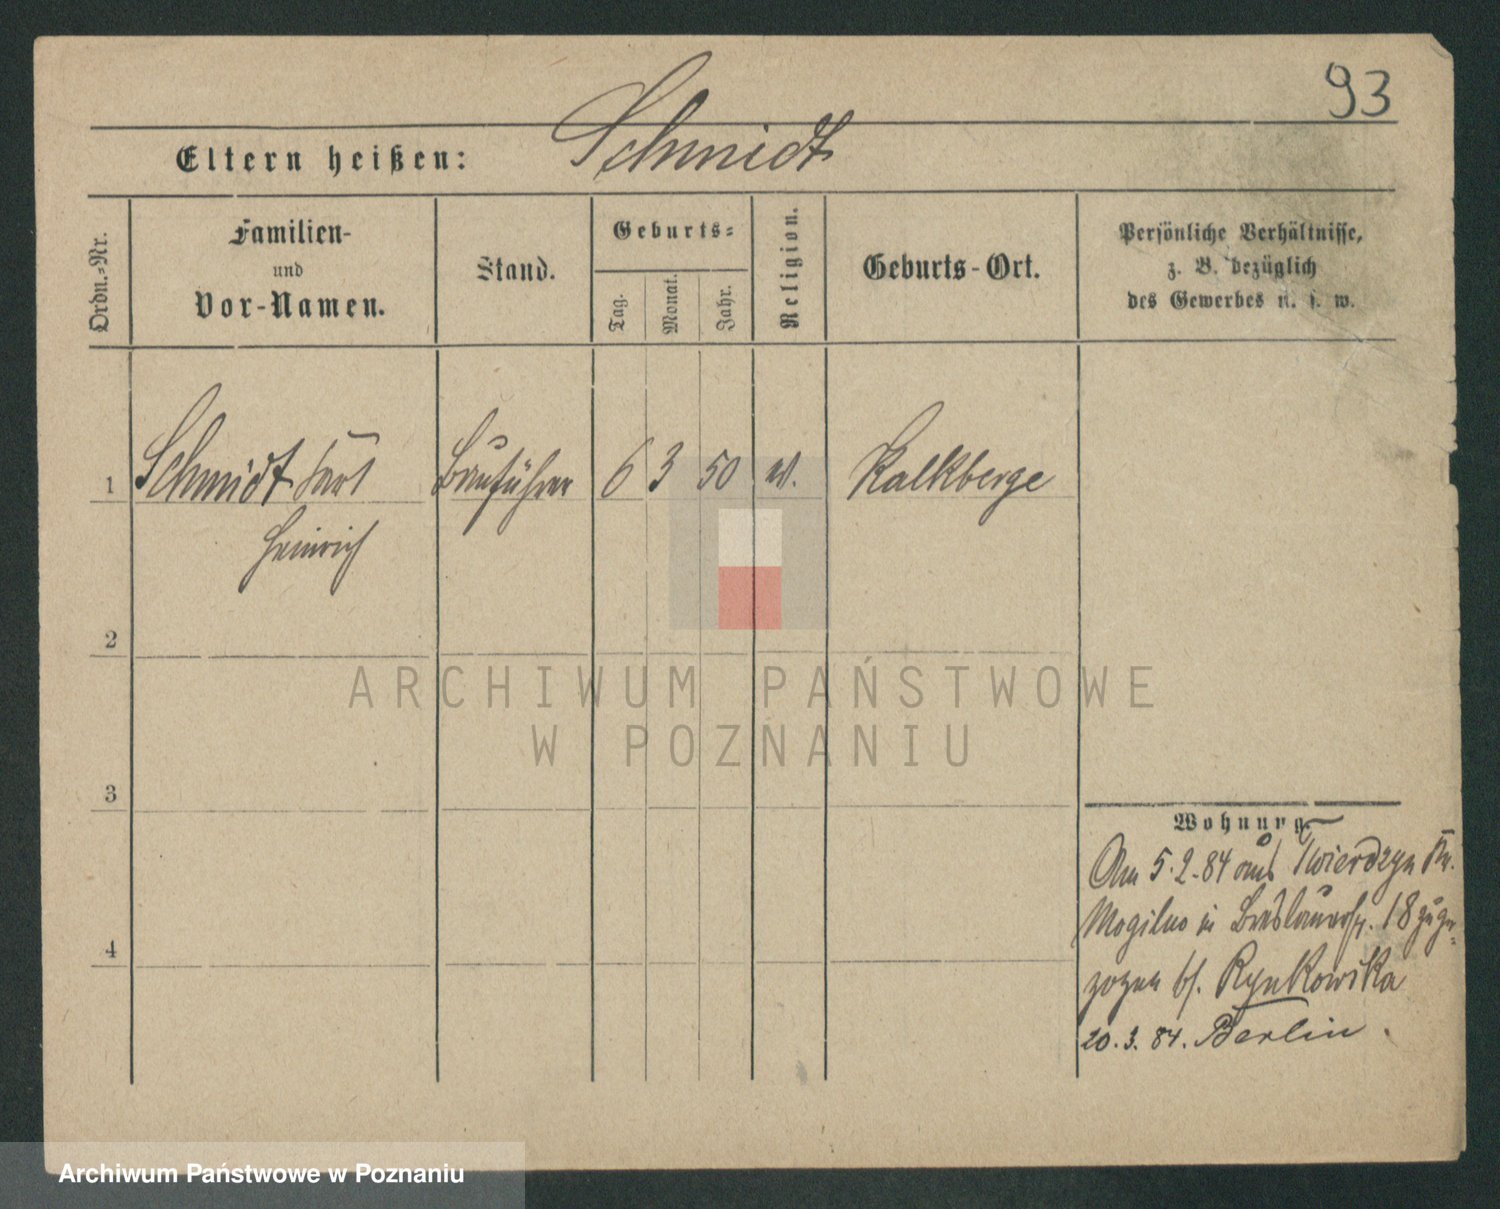 93
Eltern heißen: Schmidt
Ordn.-Nr.
Familien-
und
Vor-Namen.
Stand.
Geburts-
Tag.
Monat.
Jahr.
Religion.
Geburts-Ort.
Persönliche Verhältnisse,
z. B. bezüglich
des Gewerbes u. s. w.
1 Schmidt Karl Bauführer 6 3 50 Kalkberge
Heinrich
2
3
4
Wohnung.
Am 5.2.84 aus Twierdzyn Kr.
Mogilno in Breslauerstr. 18 zuge-
zogen bs. Rynkowska
20.3.84. Berlin.
ARCHIWUM PAŃSTWOWE
W POZNANIU
Archiwum Państwowe w Poznaniu